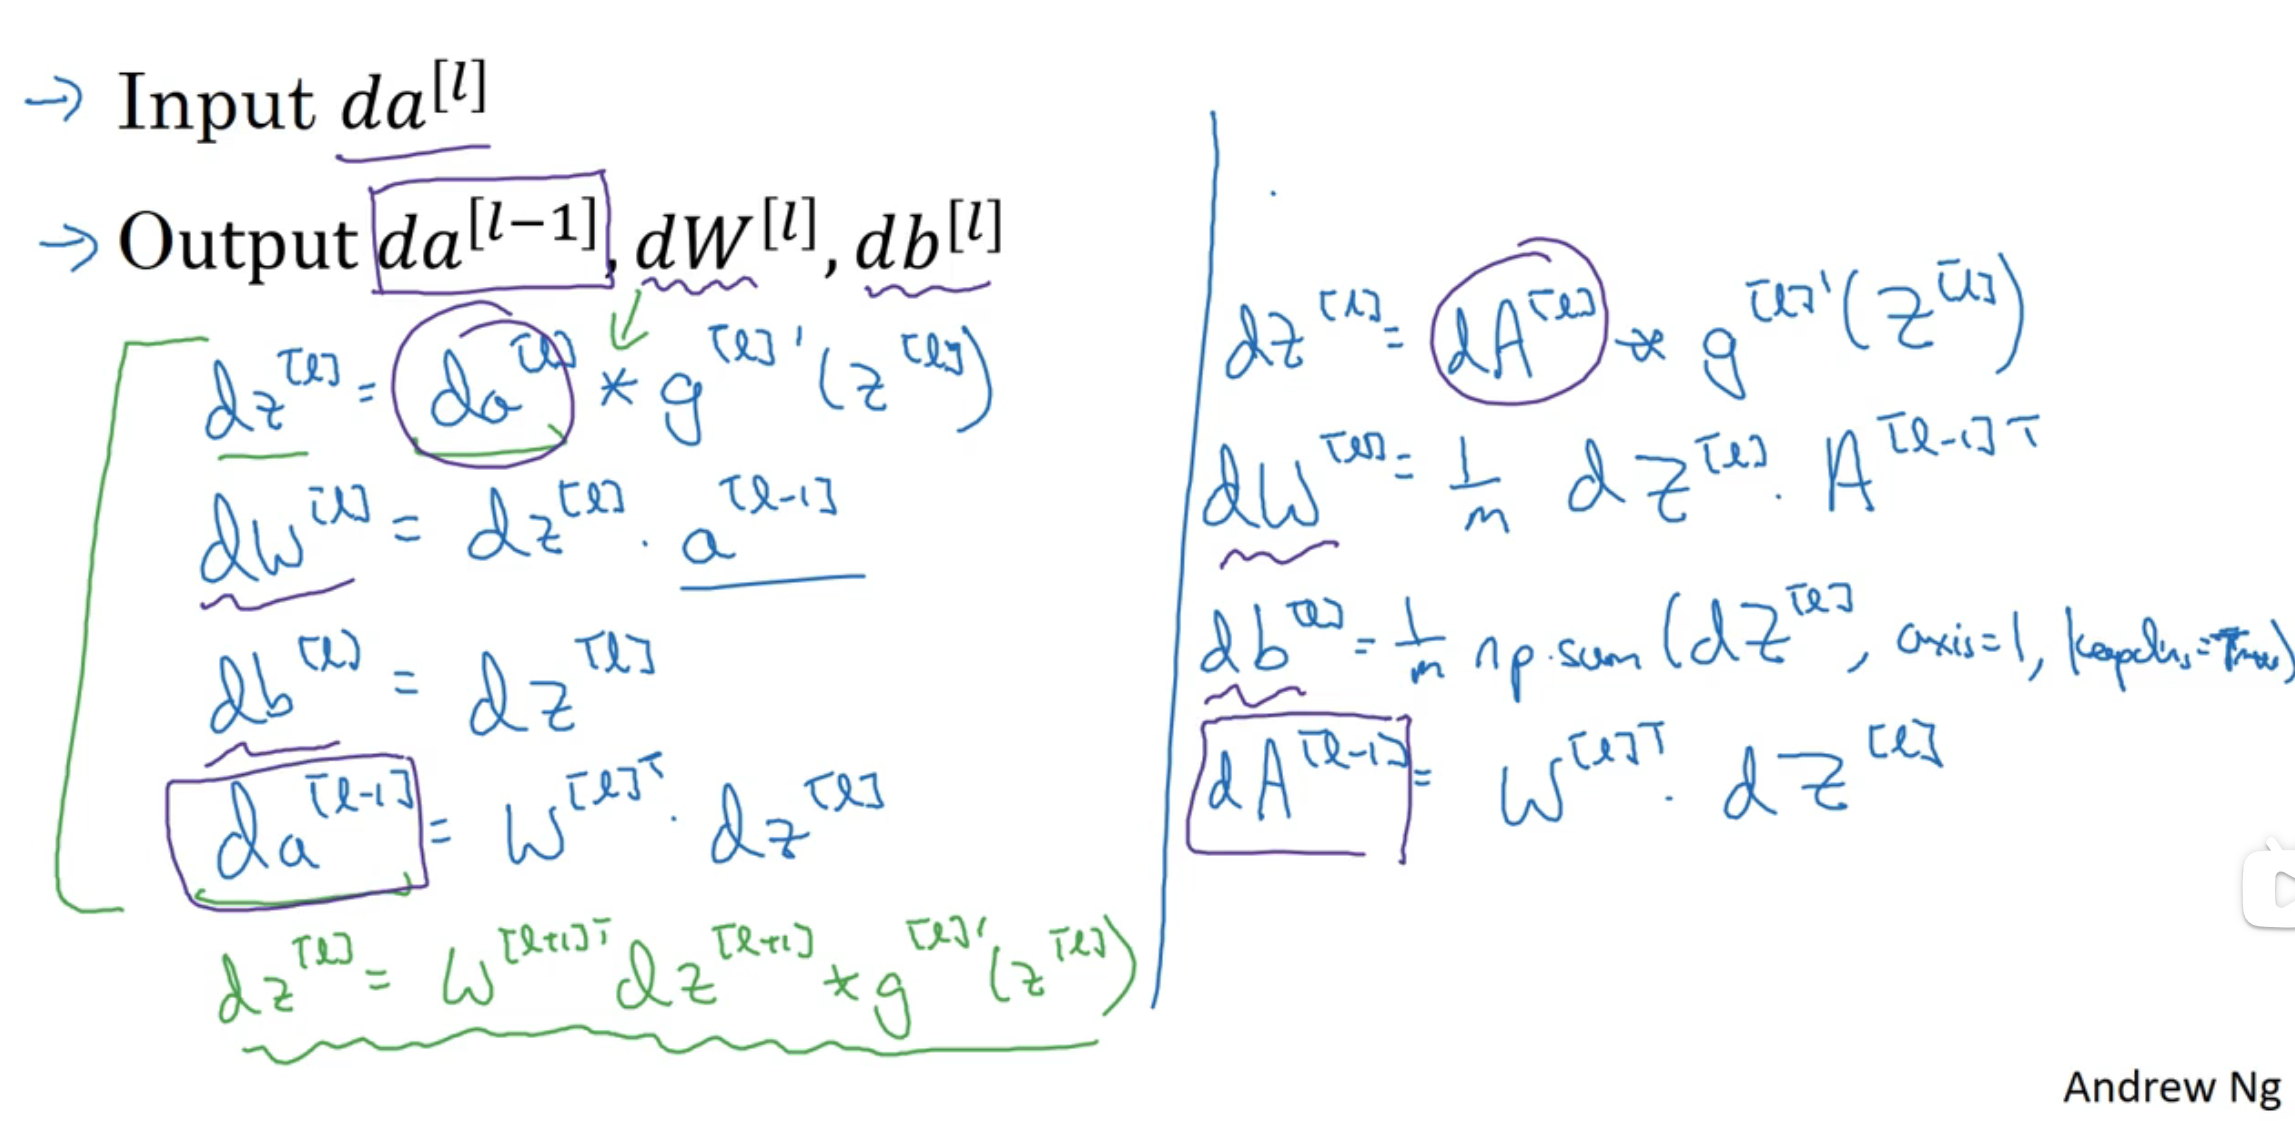 → Input da^[l]
→ Output da^[l−1], dW^[l], db^[l]
dz^[l] = da^[l] * g^[l]'(z^[l])
dW^[l] = dz^[l] · a^[l-1]
db^[l] = dz^[l]
da^[l-1] = W^[l]T · dz^[l]
dz^[l] = W^[l+1]T dz^[l+1] * g^[l]'(z^[l])
dZ^[l] = dA^[l] * g^[l]'(Z^[l])
dW^[l] = 1/m dZ^[l] · A^[l-1]T
db^[l] = 1/m np.sum(dZ^[l], axis=1, keepdims=True)
dA^[l-1] = W^[l]T · dZ^[l]
Andrew Ng